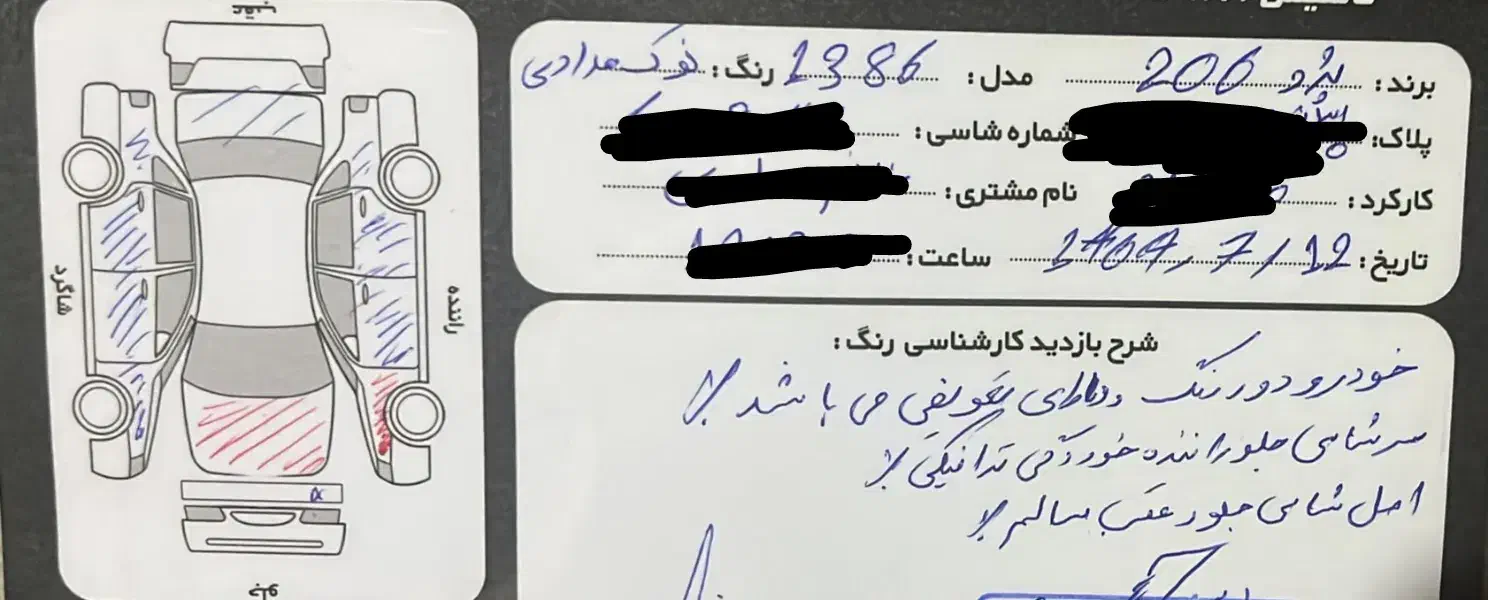 عقب
شاگرد
راننده
جلو
برند: پژو 206 مدل: 1386 رنگ: نوک مدادی
پلاک: شماره شاسی:
کارکرد: نام مشتری:
تاریخ: 1404/7/12 ساعت:
شرح بازدید کارشناسی رنگ:
خودرو دور رنگ و دارای تعویضی می باشد
سرشاسی جلو راننده خوردگی ترافیکی
اصل شاسی جلو و عقب سالم